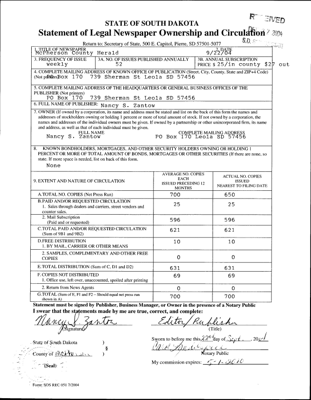 STATE OF SOUTH DAKOTA
Statement of Legal Newspaper Ownership and Circulation
Return to: Secretary of State, 500 E. Capitol, Pierre, SD 57501-5077
1. TITLE OF NEWSPAPER
McPherson County Herald
2. DATE
9/22/04
3. FREQUENCY OF ISSUE
weekly
3A. NO. OF ISSUES PUBLISHED ANNUALLY
52
3B. ANNUAL SUBSCRIPTION
PRICE $ 25/in county $27 out
4. COMPLETE MAILING ADDRESS OF KNOWN OFFICE OF PUBLICATION (Street, City, County, State and ZIP+4 Code)
PO Box 170 739 Sherman St Leola SD 57456
5. COMPLETE MAILING ADDRESS OF THE HEADQUARTERS OR GENERAL BUSINESS OFFICES OF THE
PUBLISHER (Not printers)
PO Box 170 739 Sherman St Leola SD 57456
6. FULL NAME OF PUBLISHER: Nancy S. Zantow
7. OWNER (If owned by a corporation, its name and address must be stated and also on the back of this form the names and
addresses of stockholders owning or holding 1 percent or more of total amount of stock. If not owned by a corporation, the
names and addresses of the individual owners must be given. If owned by a partnership or other unincorporated firm, its name
and address, as well as that of each individual must be given.
FULL NAME
Nancy S. Zantow
COMPLETE MAILING ADDRESS
PO Box 170 Leola SD 57456
8. KNOWN BONDHOLDERS, MORTGAGES, AND OTHER SECURITY HOLDERS OWNING OR HOLDING 1
PERCENT OR MORE OF TOTAL AMOUNT OF BONDS, MORTGAGES OR OTHER SECURITIES (If there are none, so
state. If more space is needed, list on back of this form.
None
9. EXTENT AND NATURE OF CIRCULATION
AVERAGE NO. COPIES
EACH
ISSUED PRECEDING 12
MONTHS
ACTUAL NO. COPIES
ISSUED
NEAREST TO FILING DATE
A. TOTAL NO. COPIES (Net Press Run)
700
650
B. PAID AND/OR REQUESTED CIRCULATION
1. Sales through dealers and carriers, street vendors and
counter sales.
25
25
2. Mail Subscription
(Paid and/or requested)
596
596
C. TOTAL PAID AND/OR REQUESTED CIRCULATION
(Sum of 9B1 and 9B2)
621
621
D. FREE DISTRIBUTION
1. BY MAIL, CARRIER OR OTHER MEANS
10
10
2. SAMPLES, COMPLIMENTARY AND OTHER FREE
COPIES
0
0
E. TOTAL DISTRIBUTION (Sum of C, D1 and D2)
631
631
F. COPIES NOT DISTRIBUTED
1. Office use, left over, unaccounted, spoiled after printing
69
69
2. Return from News Agents
0
0
G. TOTAL (Sum of E, F1 and F2 - Should equal net press run
shown in A)
700
700
Statement must be signed by Publisher, Business Manager, or Owner in the presence of a Notary Public
I swear that the statements made by me are true, correct, and complete:
Nancy S. Zantow
(Signature)
Editor/Publisher
(Title)
State of South Dakota )
§
County of
(Seal)
Sworn to before me this 22nd day of Sept, 2004
Notary Public
My commission expires:
Form: SOS REC 051 7/2003